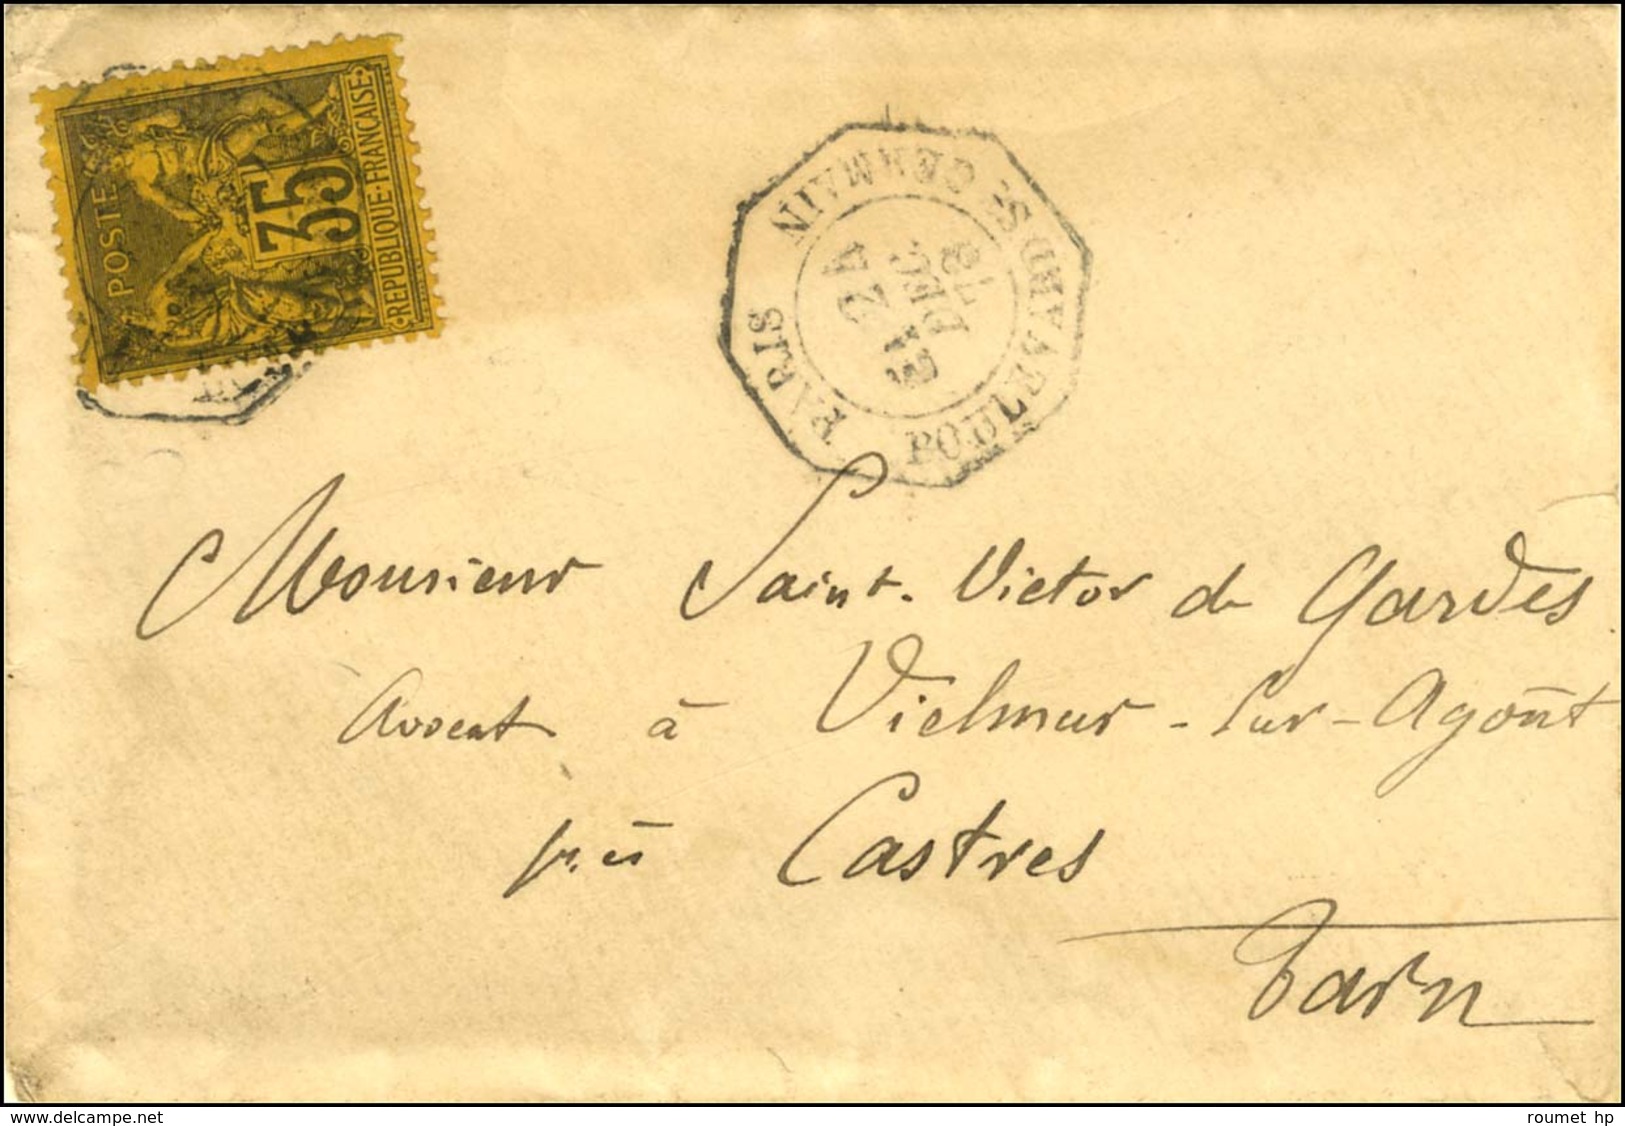 POSTE
35
REPUBLIQUE·FRANÇAISE
PARIS
POUL. VARD S. GERMAIN
2A
DEC
Monsieur Saint-Victor de Gardes
Avocat à Vielmur-sur-Agoût
près Castres
Tarn
www.delcampe.net
roumet hp